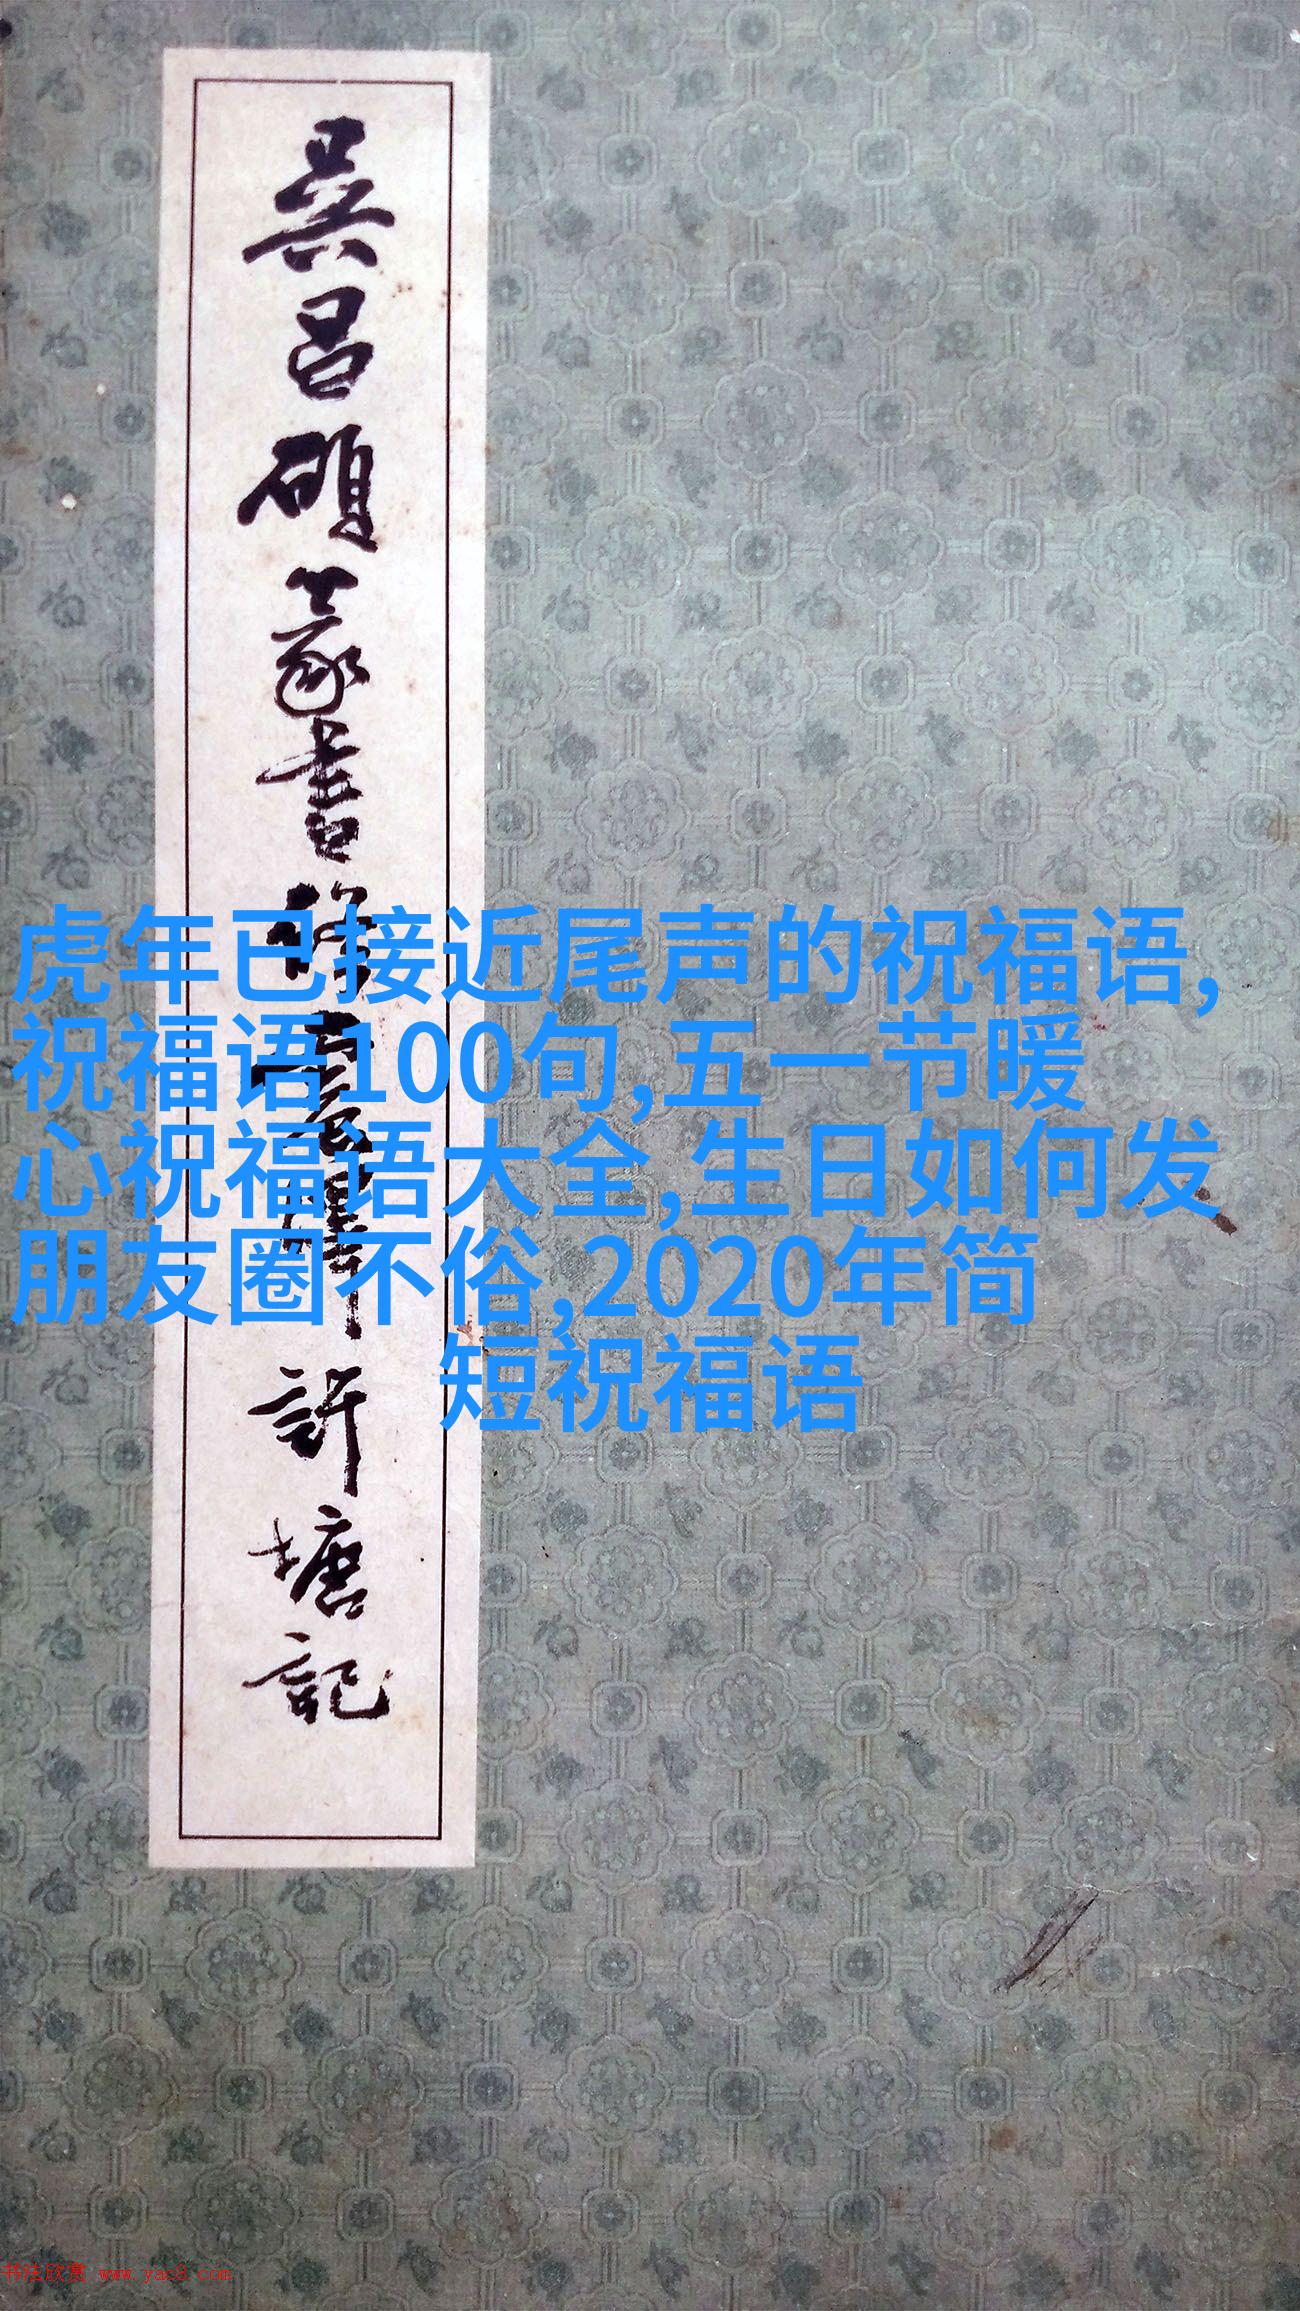 吴昌硕篆书修震泽许塘記
虎年已接近尾声的祝福语,
祝福语100句,五一节暖
心祝福语大全,生日如何发
朋友圈不俗,2020年简
短祝福语
书法欣赏 www.yac8.com